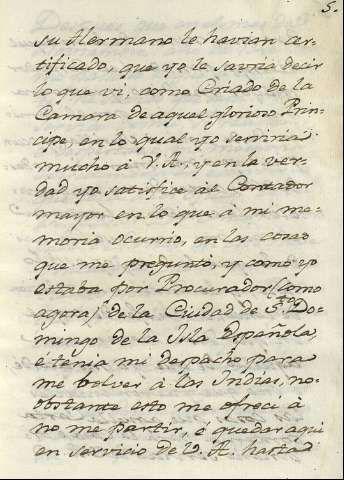 5.
su Hermano le havian cer-
tificado, que yo le savria decir
lo que vi, como Criado de la
Camara de aquel glorioso Prin-
cipe, en lo qual yo serviria
mucho à V. A. y en la ver-
dad yo satisfice àl Contador
mayor en lo que à mi me-
moria ocurrio, en las cosas
que me preguntò, y como yo
estaba por Procurador (como
agora) de la Ciudad de S.to Do-
mingo de la Isla Española,
è tenia mi despacho para
me bolver à las Indias, no-
obstante esto me ofreci à
no me partir, è quedar aqui
en servicio de V. A. hasta